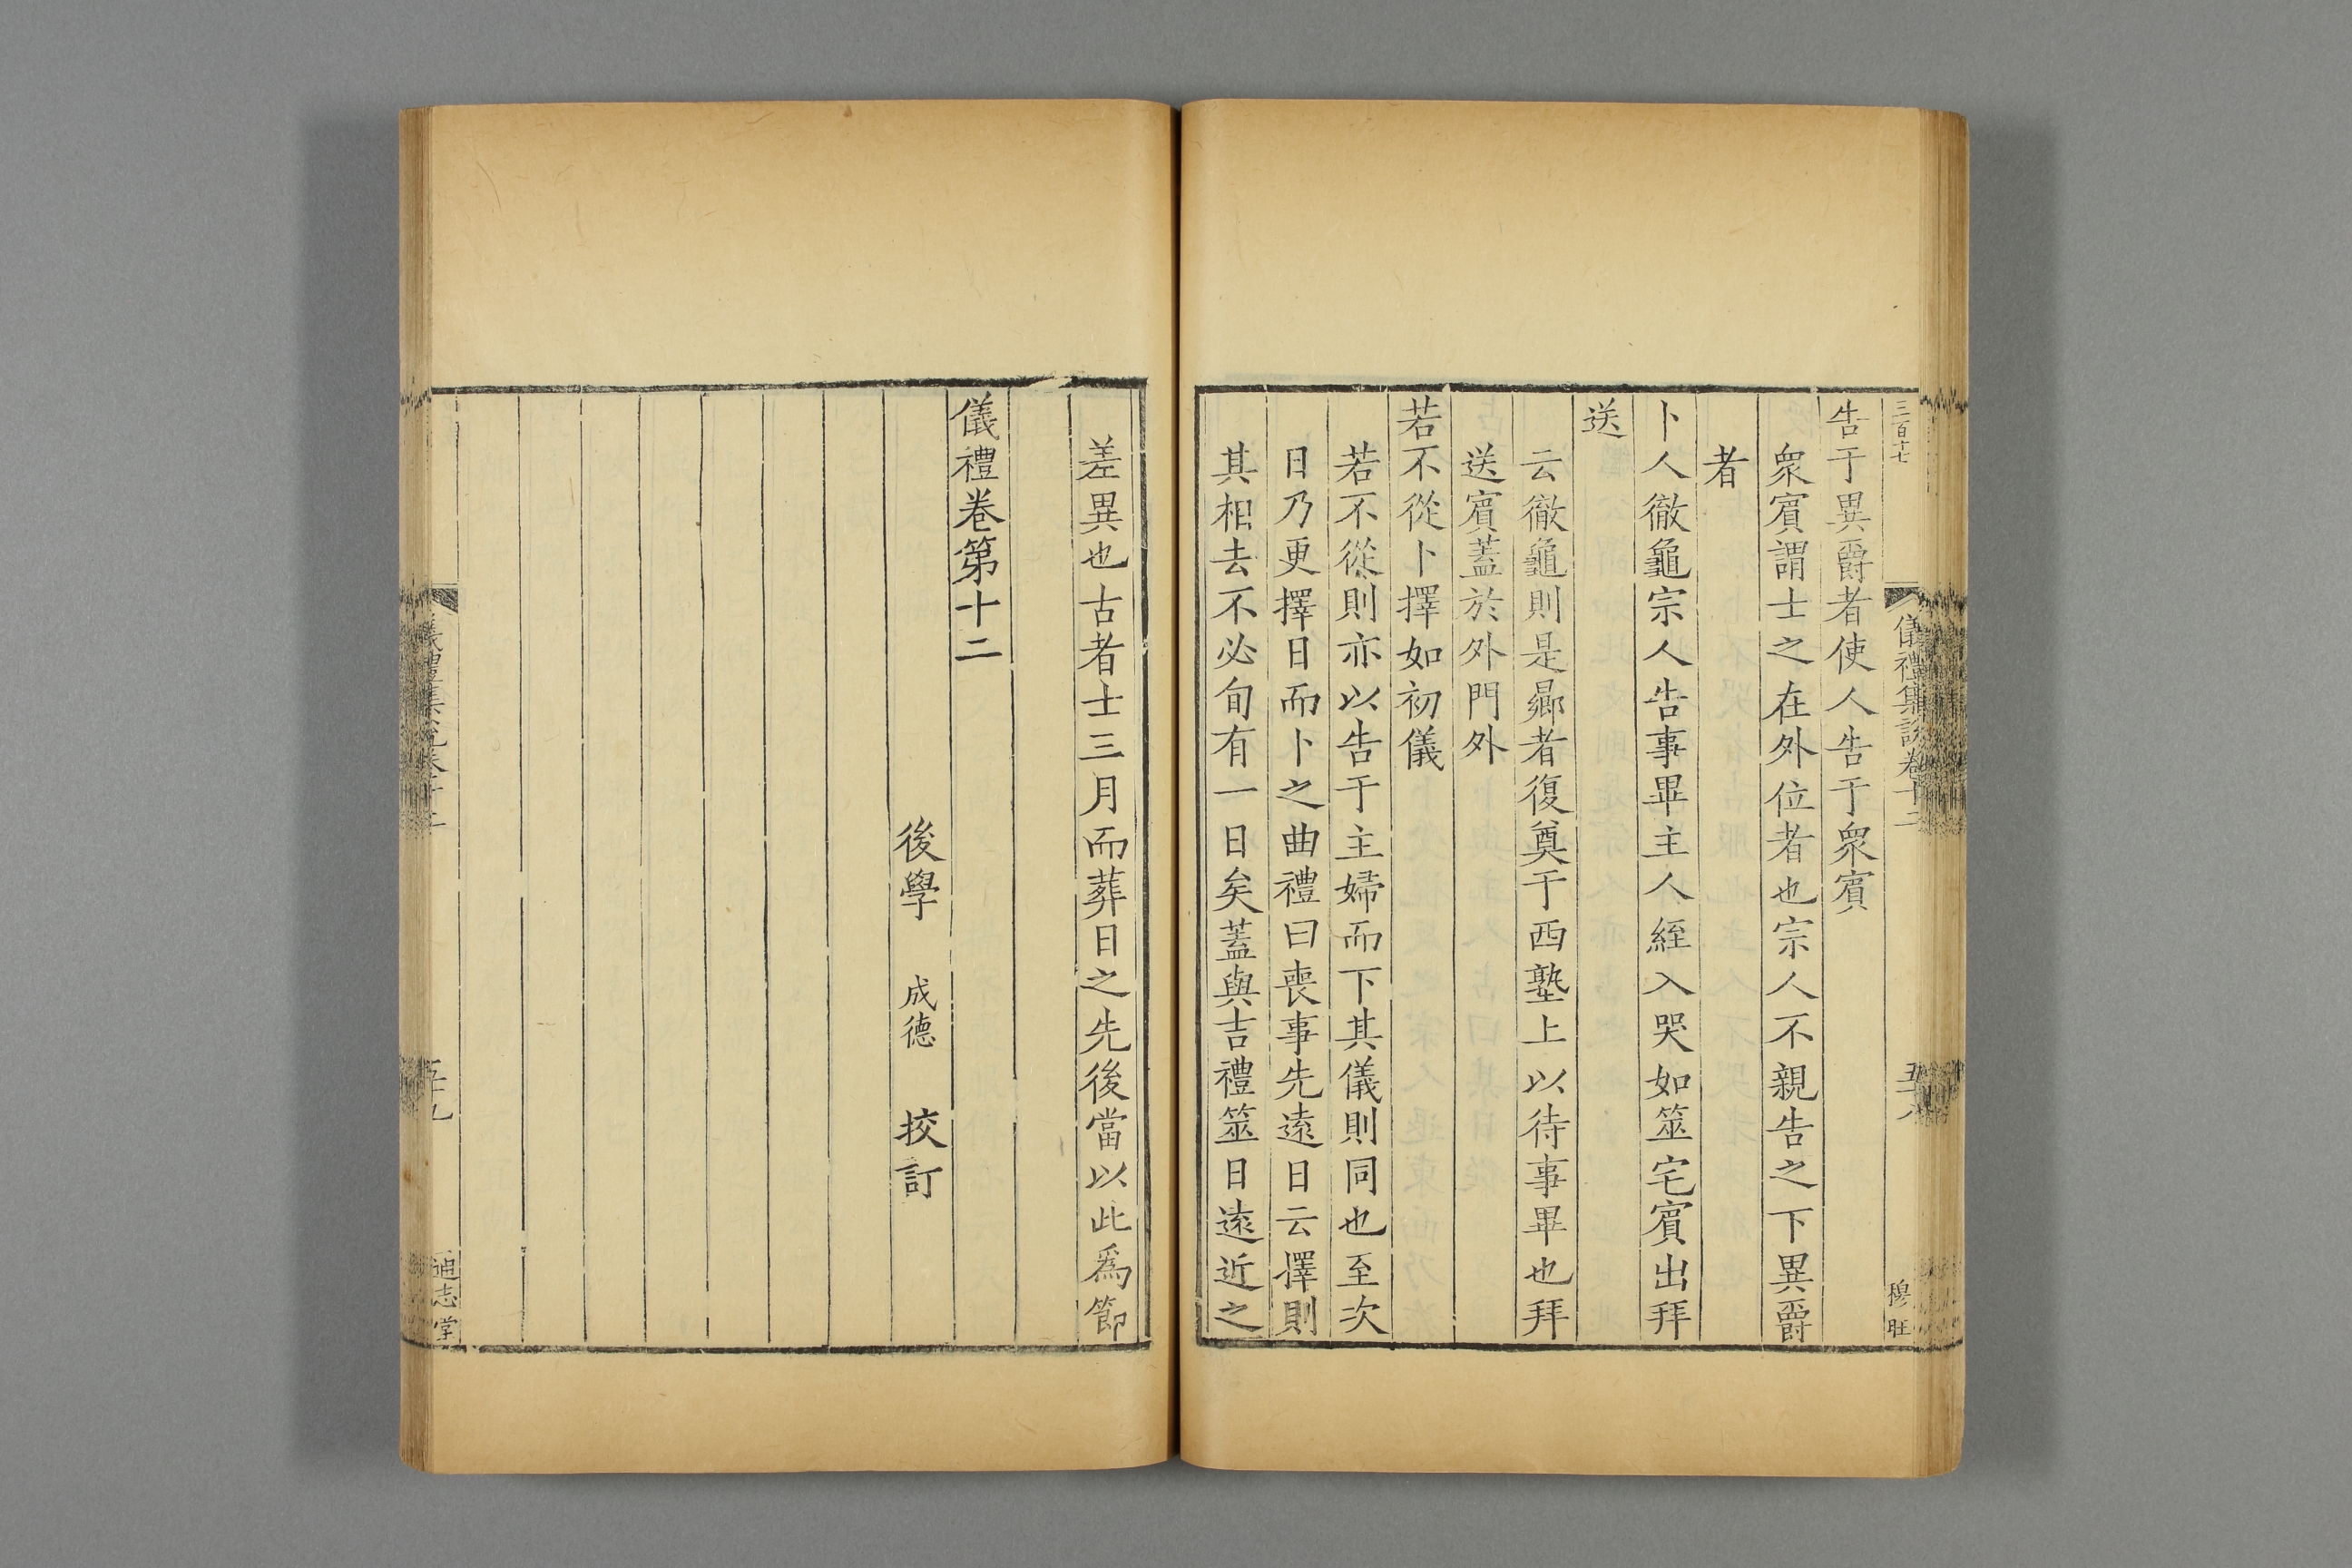 三百十七
儀禮集說卷十二
穆旺
告于異爵者使人告于衆賓
衆賓謂士之在外位者也宗人不親告之下異爵
者
卜人徹龜宗人告事畢主人絰入哭如筮宅賓出拜
送
云徹龜則是曏者復奠于西塾上以待事畢也拜
送賓蓋於外門外
若不從卜擇如初儀
若不從則亦以告于主婦而下其儀則同也至次
日乃更擇日而卜之曲禮曰喪事先遠日云擇則
其相去不必旬有一日矣蓋與吉禮筮日遠近之
差異也古者士三月而葬日之先後當以此爲節
儀禮卷第十二
後學 成德 挍訂
儀禮集說卷十二
五十九
通志堂